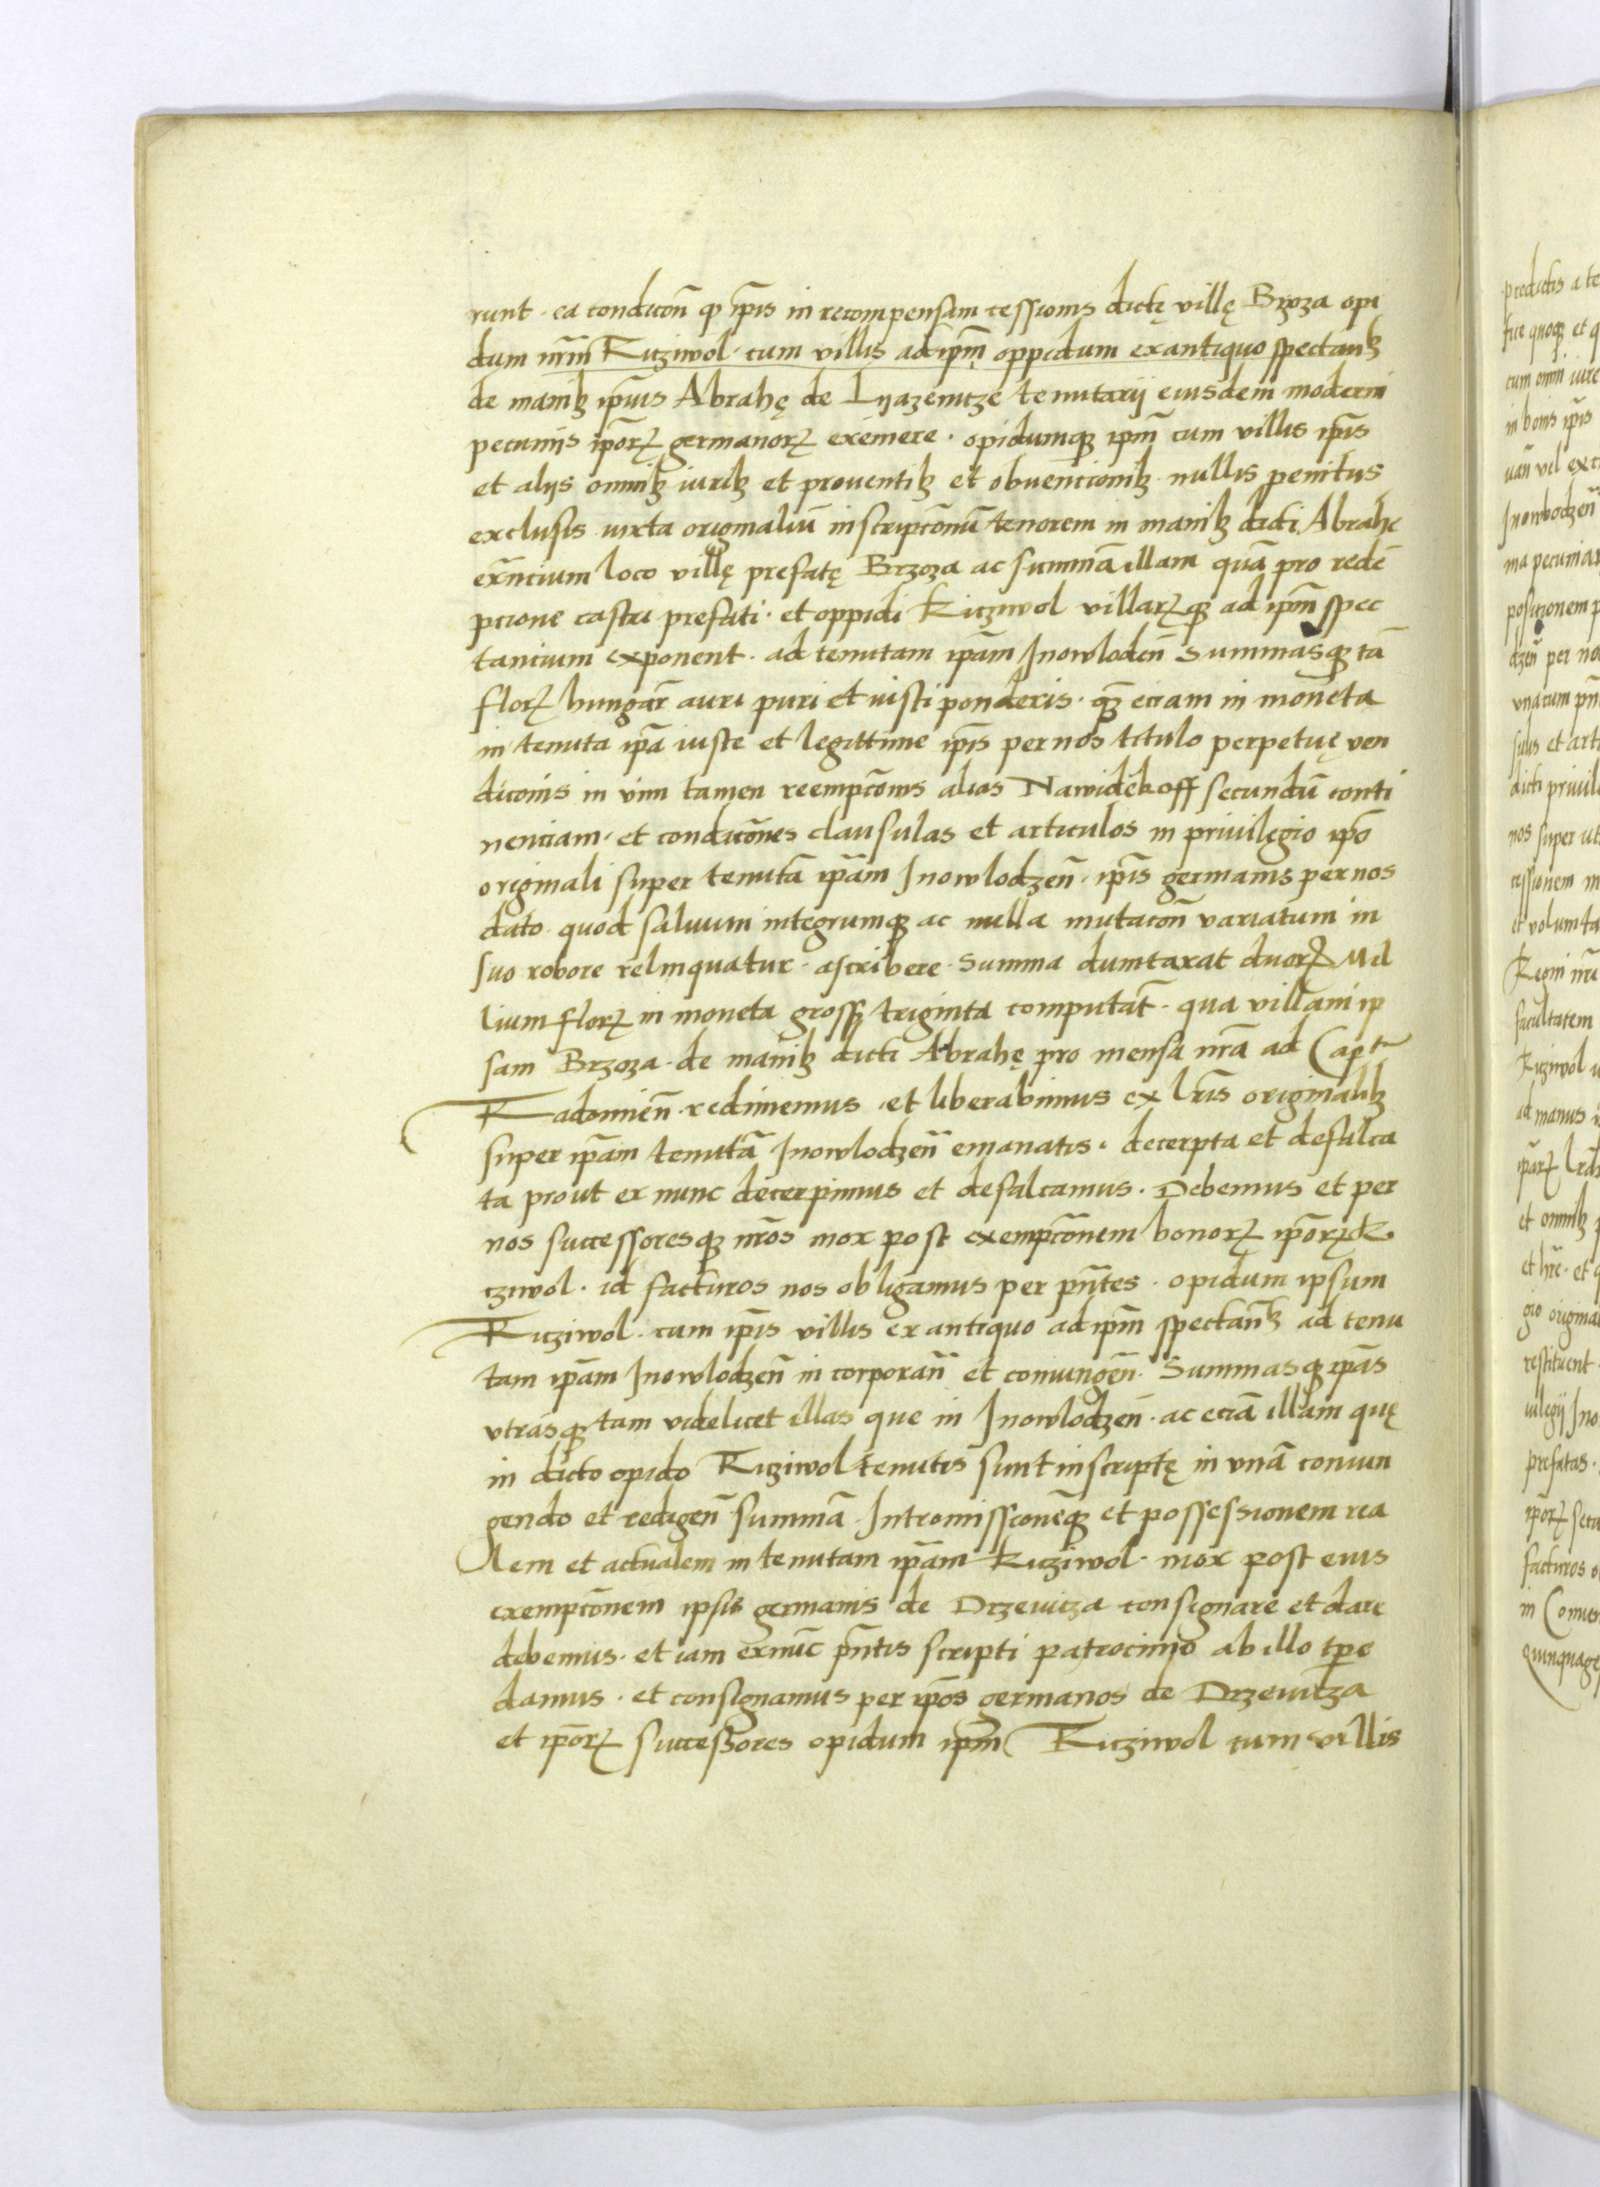 runt · ea condicoñ ꝙ ip̄is in recompensam cessionis dictę villę Brzoza opi
dum nr̄m Ritziwol · cum villis ad ip̄m oppidum ex antiquo spectantꝫ
de manibꝫ ip̄ius Abrahę de Lyazenitze tenutarij eiusdem moderni
pecunijs ip̄orꝝ germanorꝝ eximere · opidumqꝫ ip̄m cum villis ip̄is
et alijs omnibꝫ iuribꝫ et prouentibꝫ et obuencionibꝫ nullis penitus
exclusis iuxta originaliū inscripcōnū tenorem in manibꝫ dicti Abrahę
exn̄cium loco villę prefatę Brzoza ac summā illam quā pro redē
pcione castri prefati · et oppidi Ritziwol villarꝝqꝫ ad ip̄m spec
tancium exponent · ad tenutam ip̄am Inowlodeñ Summasqꝫ tā
florꝝ hungar̄ auri puri et iusti ponderis · qꝫ eciam in moneta
in tenuta ip̄a iuste et legittime ip̄is per nos titulo perpetuę ven
dicōnis in vim tamen reempcōnis alias Nawidekoff secundū conti
nenciam · et condicōnes clausulas et articulos in priuilegio ip̄o
originali super tenutā ip̄am Inowlodzeñ · ip̄is germanis per nos
dato quod saluum integrumqꝫ ac nulla mutacoñ variatum in
suo robore relinquatur · ascribere · Summa dumtaxat duorꝝ Mil
lium florꝝ in moneta grossꝫ triginta computat̄ · qua villam ip
sam Brzoza · de manibꝫ dicti Abrahę pro mensa nr̄a ad Capt̄
Radomieñ · redimemus · et liberabimus ex lr̄is originalibꝫ
super ip̄am tenutā Inowlodzeñ emanatis · decerpta et defalca
ta prout ex nunc decerpimus et defalcamus · Debemus et per
nos successoresqꝫ nr̄os mox post exempcōnem bonorꝝ ip̄orꝝ Ri
tziwol · id facturos nos obligamus per pn̄tes · opidum ipsum
Ritziwol · cum ip̄is villis ex antiquo ad ip̄m spectantꝫ ad tenu
tam ip̄am Inowlodzeñ incorporañ et coniungeñ · Summasqꝫ ip̄as
vtrasqꝫ tam videlicet illas que in Inowlodzeñ · ac eciā illam quę
in dicto opido Ritziwol tenutis sunt inscriptę in vnā coniun
gendo et redigeñ summā · Intromissionēqꝫ et possessionem rea
lem et actualem in tenutam ip̄am Ritziwol · mox post eius
exempcōnem ipsis germanis de Drzewitza consignare et dare
debemus · et iam exnūc pn̄tis scripti patrocinio ab illo tp̄e
damus · et consignamus per ip̄os germanos de Drzewitza
et ip̄orꝝ successores opidum ip̄m Ritziwol cum villis